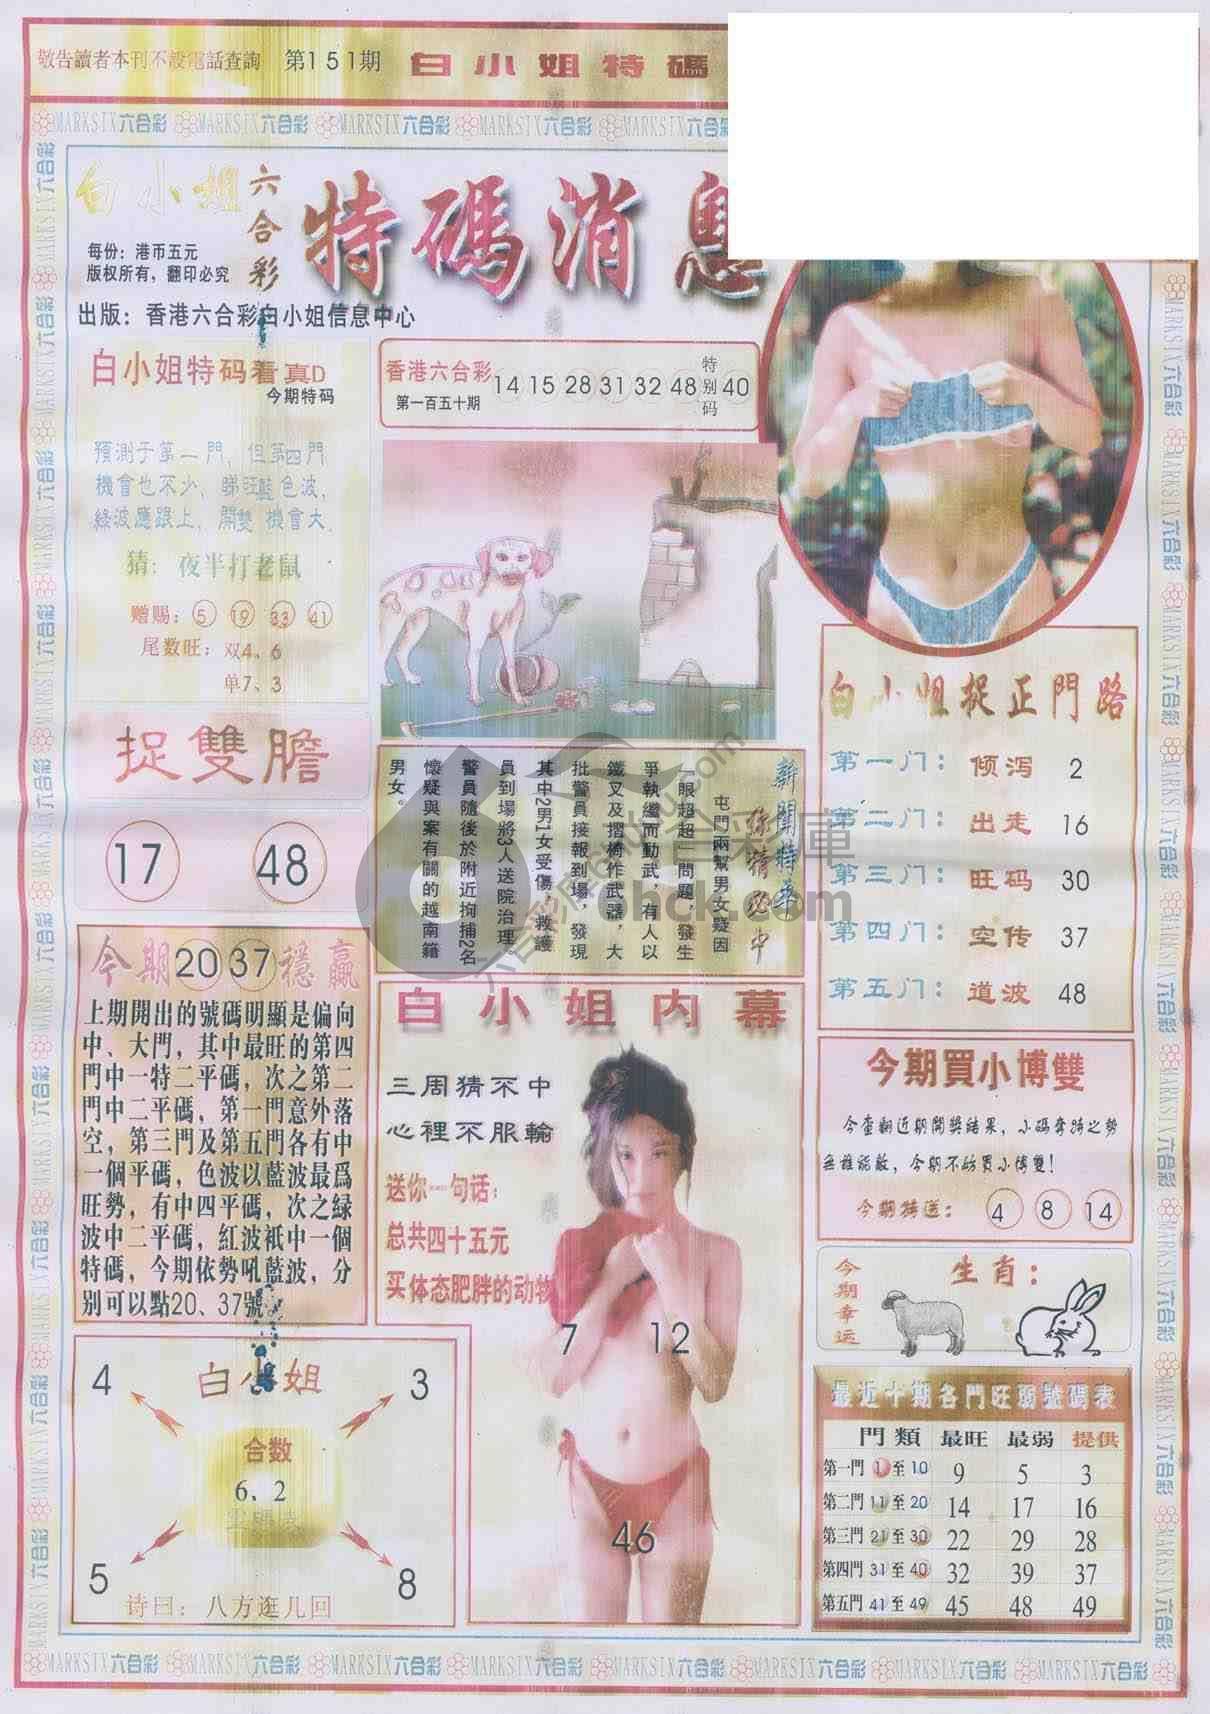 敬告讀者本刊不設電話查詢 第151期 白小姐特碼
MARKSIX六合彩 MARKSIX六合彩 MARKSIX六合彩 MARKSIX六合彩 MARKSIX六合彩
白小姐
六合彩
特碼消息
每份：港币五元
版权所有，翻印必究
出版：香港六合彩白小姐信息中心
白小姐特码看真D
今期特码
預測于第一門，但第四門
機會也不少、睇旺藍色波，
綠波應跟上、開雙機會大.
猜：夜半打老鼠
赠赐：5 19 33 41
尾数旺：双4、6
单7、3
香港六合彩
第一百五十期
14 15 28 31 32 48 特别码 40
捉雙膽
17 48
新聞特平
你猜必中
屯門兩幫男女疑因
眼超超一問題，發生
爭執繼而動武，有人以
鐵叉及摺椅作武器，大
批警員接報到場，發現
其中2男1女受傷，救護
員到場將3人送院治理
警員隨後於附近拘捕2名
懷疑與案有關的越南籍
男女。
白小姐捉正門路
第一门：倾泻 2
第二门：出走 16
第三门：旺码 30
第四门：空传 37
第五门：道波 48
今期20 37穩贏
上期開出的號碼明顯是偏向
中、大門，其中最旺的第四
門中一特二平碼，次之第二
門中二平碼，第一門意外落
空，第三門及第五門各有中
一個平碼，色波以藍波最爲
旺勢，有中四平碼，次之绿
波中二平碼，紅波祇中一個
特碼，今期依勢吼藍波，分
别可以點20、37號。
白小姐内幕
三周猜不中
心裡不服輸
送你一句话：
总共四十五元
买体态肥胖的动物
7 12
46
今期買小博雙
今查翻近期開獎結果，小碼奪特之勢
無誰能敵，今期不妨買小博雙！
今期特送：4 8 14
今期幸运
生肖：
4 白小姐 3
合数
6、2
5 8
诗曰：八方逛几回
最近十期各門旺弱號碼表
門類 最旺 最弱 提供
第一門 1至10 9 5 3
第二門 11至20 14 17 16
第三門 21至30 22 29 28
第四門 31至40 32 39 37
第五門 41至49 45 48 49
MARKSIX六合彩 MARKSIX六合彩 MARKSIX六合彩 MARKSIX六合彩 MARKSIX六合彩 MARKSIX六合彩 MARKSIX六合彩 MARKSIX六合彩